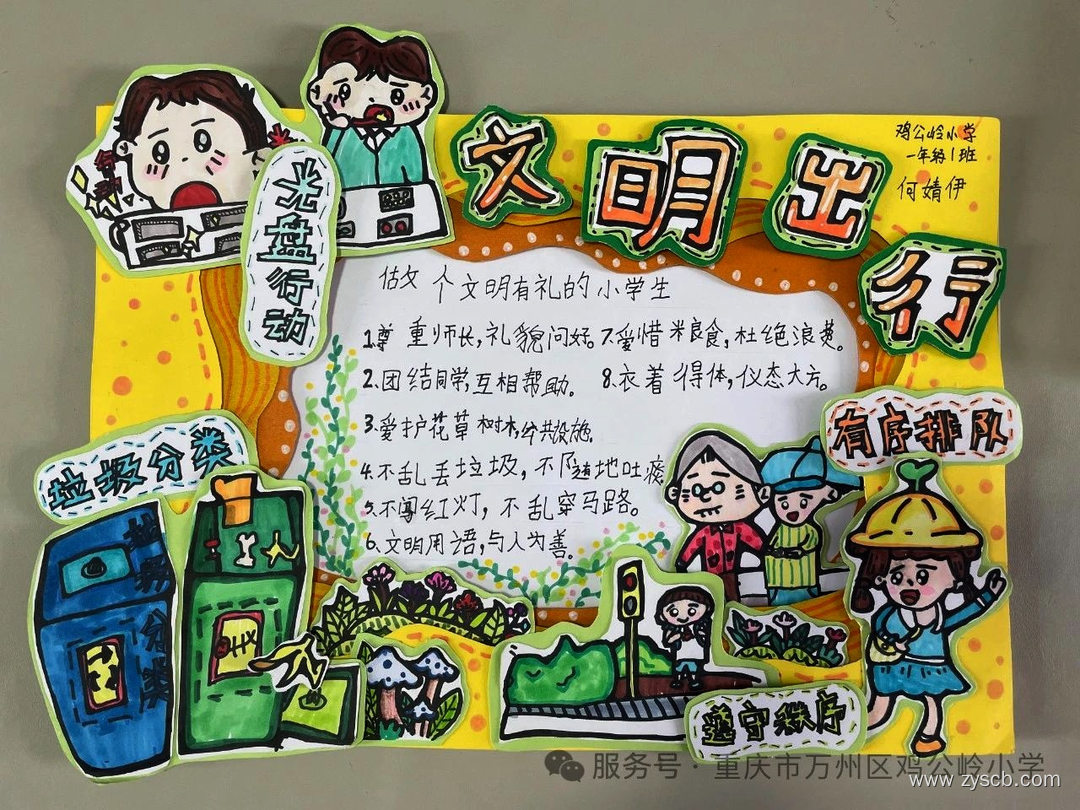 文明出行
鸡公岭小学
一年级1班
何婧伊
光盘行动
做文 个文明有礼的小学生
1.尊 重师长,礼貌问好。
2.团结同学,互相帮助。
3.爱护花草树木,公共设施。
4.不乱丢垃圾,不随地吐痰
5.不闯红灯,不乱穿马路。
6.文明用语,与人为善。
7.爱惜粮食,杜绝浪费。
8.衣着得体,仪态大方。
垃圾分类
有序排队
分类
遵守秩序
服务号·重庆市万州区鸡公岭小学
www.zyscb.com